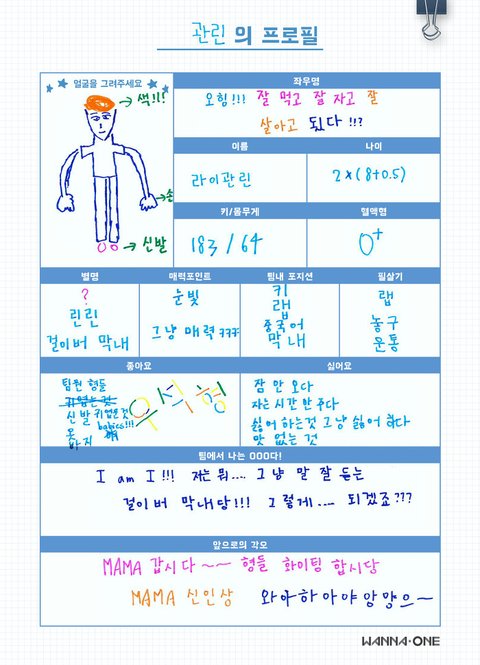 관린 의 프로필
얼굴을 그려주세요
색!!
손
신발
좌우명
오힘!!! 잘 먹고 잘 자고 잘
살아고 됬다 !!?
이름
라이관린
나이
2×(8+0.5)
키/몸무게
183 / 64
혈액형
O+
별명
?
린린
걸이버 막내
매력포인트
눈빛
그냥 매력 ㅋㅋㅋ
팀내 포지션
키
랩
중국어
막내
필살기
랩
농구
운동
좋아요
팀원 형들
귀엽는것
신발 귀엽은것
옷 babies!!!
바지
우석형
싫어요
잠 안 오다
자는 시간 안 주다
싫어 하는것 그냥 싫어 하다
맛 없는 것
팀에서 나는 OOO다!
I am I !!! 저는 뭐.... 그냥 말 잘 듣는
걸이버 막내당!!! 그렇게.... 되겠죠???
앞으로의 각오
MAMA 갑시다~~ 형들 화이팅 합시당
MAMA 신인상 와아하아야앙먕으~
WANNA·ONE